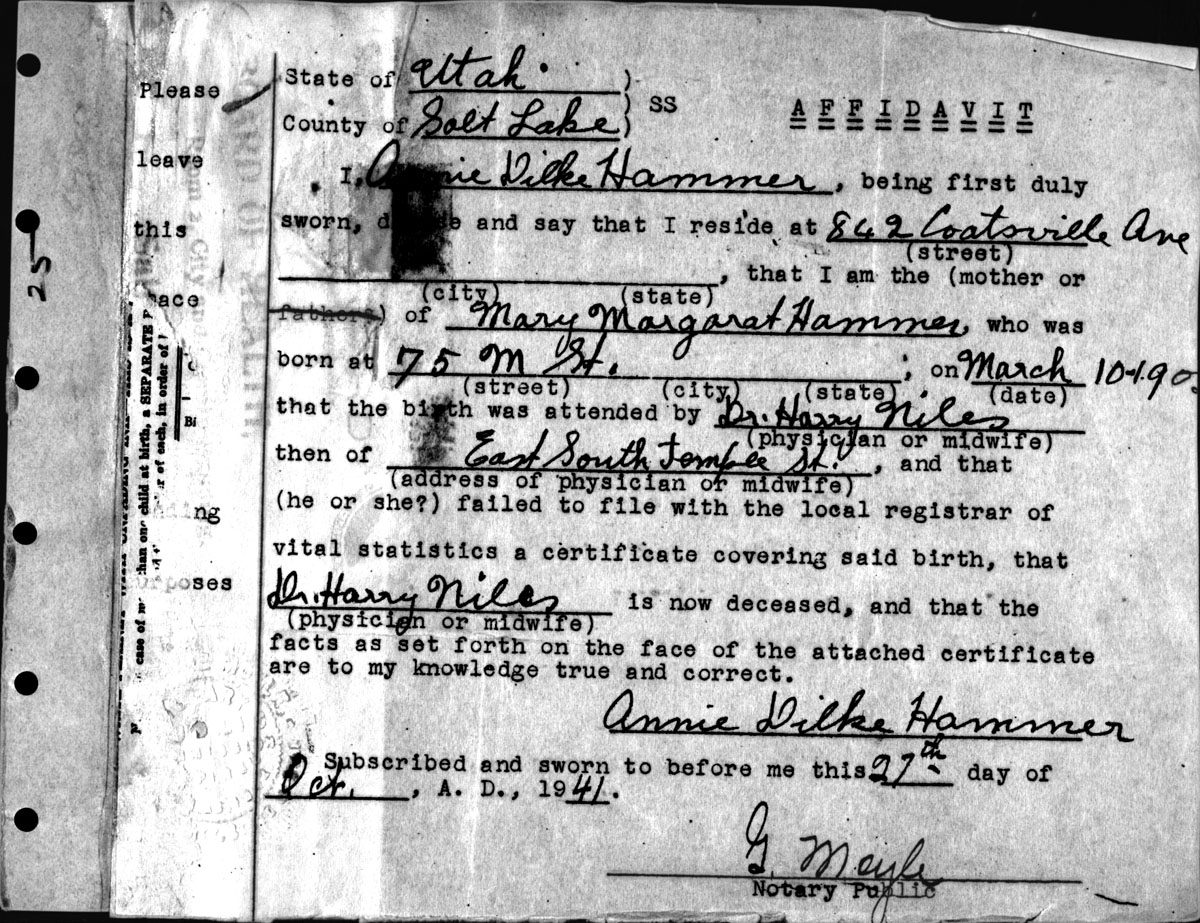 State of Utah ) SS
AFFIDAVIT
County of Salt Lake )
I, Annie Dilke Hammer, being first duly
sworn, and say that I reside at 842 Coatsville Ave
(street)
, that I am the (mother or
(city) (state)
fathers) of Mary Margarat Hammer, who was
born at 75 M St. ; on March 10-190
(street) (city) (state) (date)
that the birth was attended by Dr. Harry Niles
(physician or midwife)
then of East South Temple St., and that
(address of physician or midwife)
(he or she?) failed to file with the local registrar of
vital statistics a certificate covering said birth, that
Dr. Harry Niles is now deceased, and that the
(physician or midwife)
facts as set forth on the face of the attached certificate
are to my knowledge true and correct.
Annie Dilke Hammer
Subscribed and sworn to before me this 27th day of
Oct., A. D., 1941.
G Mayle
Notary Public
Please
leave
this
25